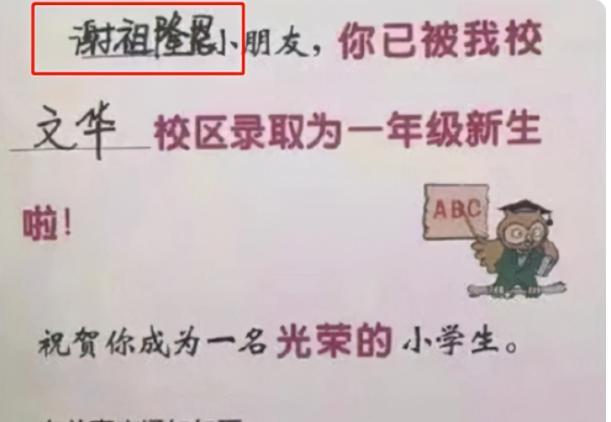 谢祖隆恩小朋友，你已被我校
文华校区录取为一年级新生
啦！
ABC
祝贺你成为一名光荣的小学生。